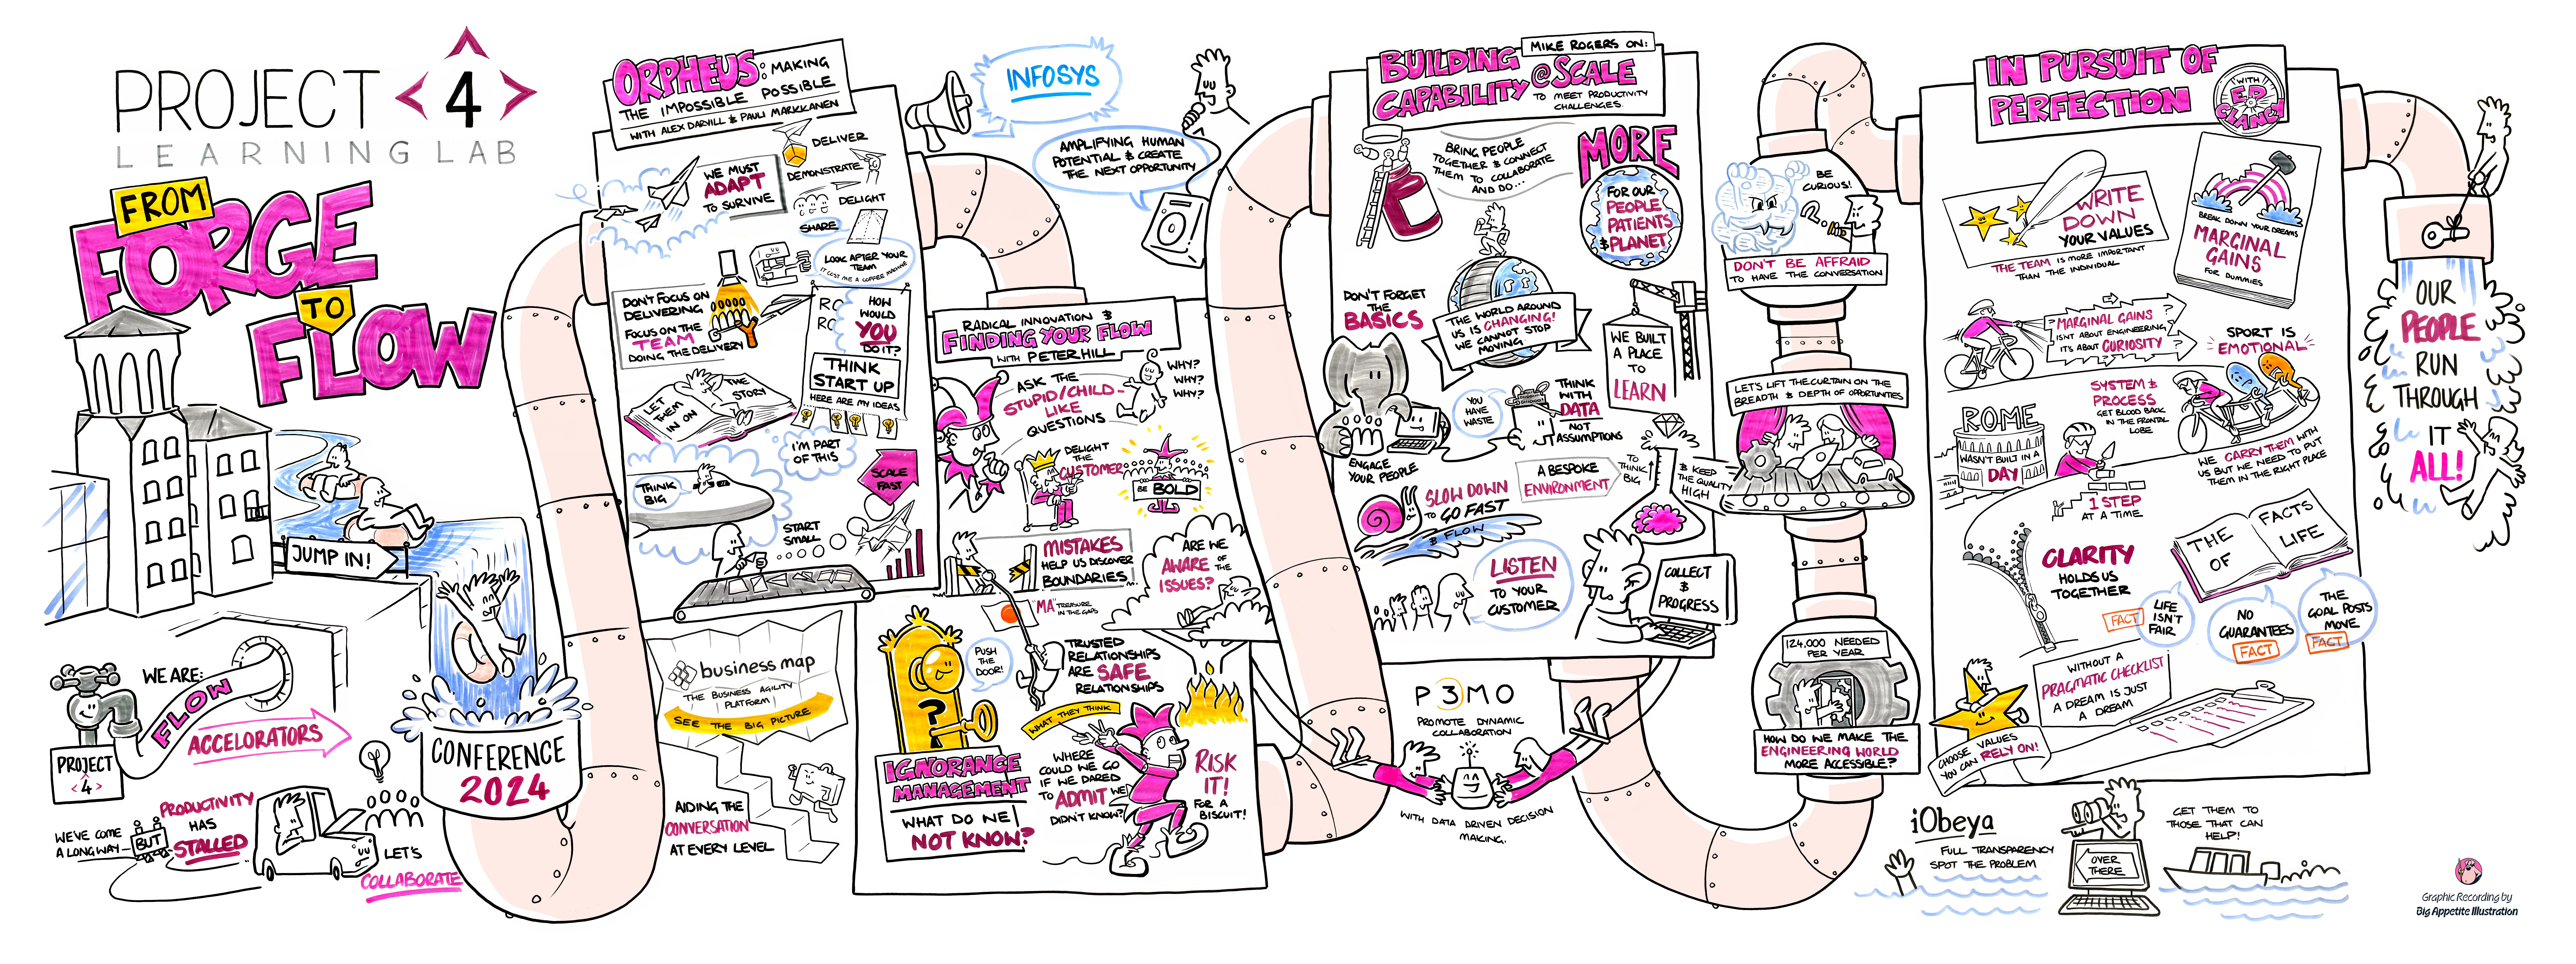 PROJECT <4>
LEARNING LAB
FROM
FORGE
TO
FLOW
JUMP IN!
WE ARE:
FLOW
ACCELORATORS
PROJECT
<4>
WE'VE COME
A LONG WAY –
BUT
PRODUCTIVITY
HAS
STALLED
LET'S
COLLABORATE
CONFERENCE
2024
ORPHEUS: MAKING
THE IMPOSSIBLE POSSIBLE
WITH ALEX DARVILL & PAULI MARKKANEN
WE MUST
ADAPT
TO SURVIVE
DELIVER
DEMONSTRATE
DELIGHT
SHARE
LOOK AFTER YOUR
TEAM
IT COST ME A COFFEE MACHINE
DON'T FOCUS ON
DELIVERING,
FOCUS ON THE
TEAM
DOING THE DELIVERY
HOW
WOULD
YOU
DO IT?
THINK
START UP
HERE ARE MY IDEAS
LET
THEM
IN ON
THE
STORY
I'M PART
OF THIS
THINK
BIG
SCALE
FAST
START
SMALL
businessmap
THE BUSINESS AGILITY
PLATFORM
SEE THE BIG PICTURE
AIDING THE
CONVERSATION
AT EVERY LEVEL
INFOSYS
AMPLIFYING HUMAN
POTENTIAL & CREATE
THE NEXT OPPORTUNITY
RADICAL INNOVATION &
FINDING YOUR FLOW
WITH PETER HILL
ASK THE
STUPID/CHILD-
LIKE
QUESTIONS
WHY?
WHY?
WHY?
DELIGHT
THE
CUSTOMER
BE BOLD
MISTAKES
HELP US DISCOVER
BOUNDARIES...
ARE WE
AWARE OF THE
ISSUES?
"MA" TREASURE
IN THE GAPS
PUSH
THE
DOOR!
TRUSTED
RELATIONSHIPS
ARE SAFE
RELATIONSHIPS
?
WHAT THEY THINK
IGNORANCE
MANAGEMENT
WHAT DO WE
NOT KNOW?
WHERE
COULD WE GO
IF WE DARED
TO ADMIT WE
DIDN'T KNOW?
RISK
IT!
FOR A
BISCUIT!
MIKE ROGERS ON:
BUILDING
CAPABILITY @SCALE
TO MEET PRODUCTIVITY
CHALLENGES.
BRING PEOPLE
TOGETHER & CONNECT
THEM TO COLLABORATE
AND DO...
MORE
FOR OUR
PEOPLE
PATIENTS
& PLANET
DON'T FORGET
THE
BASICS
THE WORLD AROUND
US IS CHANGING!
WE CANNOT STOP
MOVING
WE BUILT
A PLACE
TO
LEARN
YOU
HAVE
WASTE
THINK
WITH
DATA
NOT
ASSUMPTIONS
ENGAGE
YOUR PEOPLE
A BESPOKE
ENVIRONMENT
TO
THINK
BIG
& KEEP
THE QUALITY
HIGH
SLOW DOWN
TO GO FAST
& FLOW
LISTEN
TO YOUR
CUSTOMER
COLLECT
&
PROGRESS
P3MO
PROMOTE DYNAMIC
COLLABORATION
WITH DATA DRIVEN DECISION
MAKING.
BE
CURIOUS!
DON'T BE AFFRAID
TO HAVE THE CONVERSATION
LET'S LIFT THE CURTAIN ON THE
BREADTH & DEPTH OF OPPORTUNITIES
124,000 NEEDED
PER YEAR
HOW DO WE MAKE THE
ENGINEERING WORLD
MORE ACCESSIBLE?
IN PURSUIT OF
PERFECTION
WITH
ED
CLANCY
WRITE
DOWN
YOUR VALUES
THE TEAM IS MORE IMPORTANT
THAN THE INDIVIDUAL
BREAK DOWN YOUR DREAMS
MARGINAL
GAINS
FOR DUMMIES
MARGINAL GAINS
ISN'T ABOUT ENGINEERING,
IT'S ABOUT CURIOSITY
SPORT IS
EMOTIONAL
SYSTEM &
PROCESS
GET BLOOD BACK
IN THE FRONTAL
LOBE
ROME
WASN'T BUILT IN A
DAY
1 STEP
AT A TIME
WE CARRY THEM WITH
US BUT WE NEED TO PUT
THEM IN THE RIGHT PLACE
CLARITY
HOLDS US
TOGETHER
THE
OF
FACTS
LIFE
FACT
LIFE
ISN'T
FAIR
NO
GUARANTEES
FACT
THE
GOAL POSTS
MOVE
FACT
WITHOUT A
PRAGMATIC CHECKLIST
A DREAM IS JUST
A DREAM
CHOOSE VALUES
YOU CAN RELY ON!
iObeya
FULL TRANSPARENCY
SPOT THE PROBLEM
OVER
THERE
GET THEM TO
THOSE THAT CAN
HELP!
OUR
PEOPLE
RUN
THROUGH
IT
ALL!
Graphic Recording by
Big Appetite Illustration